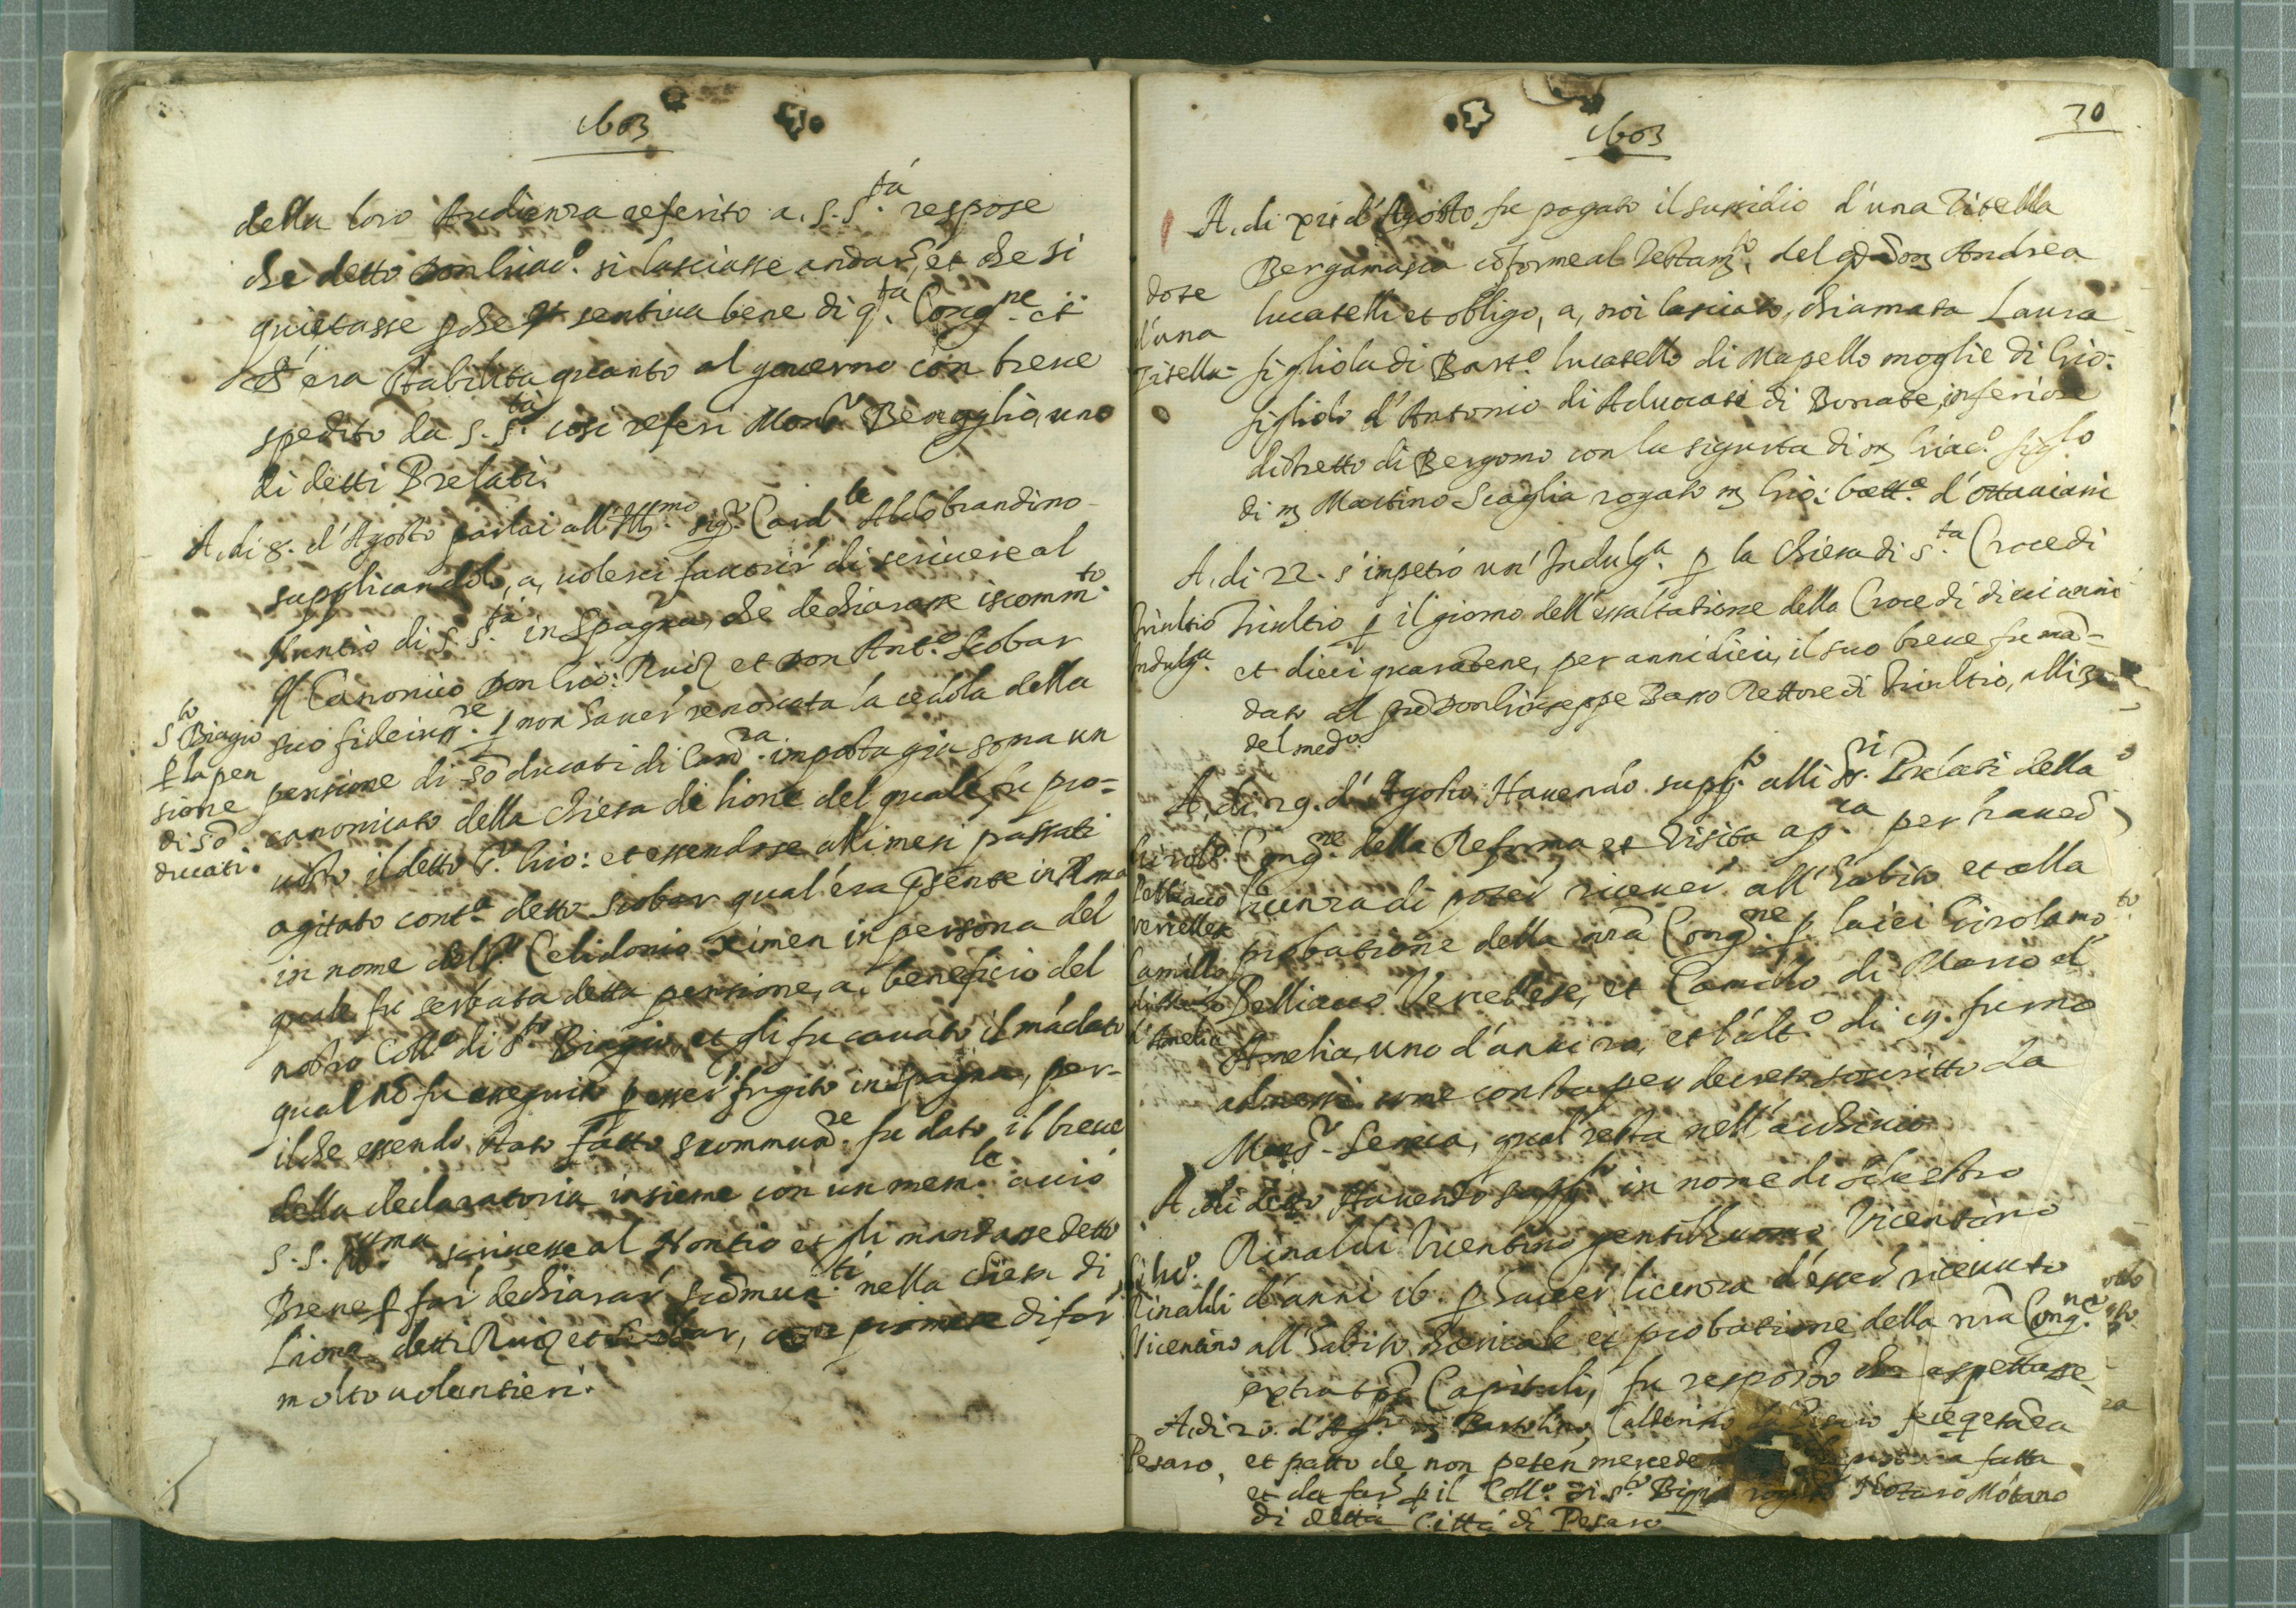 1603
della loro Audienza referito a. S. S.tá respose
che detto Don Giac.o si lasciasse andar, et che si
quietasse pche sentiva bene di q.ta Cong.ne et
ch'era stabilita quanto al governo con breve
spedito da S. S.tà cosi referi Mons.r Bevoglio, uno
di detti Prelati.
A, di 8. d'Agosto parlai all'Ill.mo sig.r Card.le Aldobrandino
supplicandolo, a, volerci favorir di scrivere al
Nuntio di S. S.tà in Spagna, che dechiarasse iscomm.to
Il Canonico Don Gio: Ruiz et Don Ant.o Scobar
suo fideius.re p non haver renovata la cedola della
pensione di 50 ducati di Cam.ra
canonicato della Chiesa di Lione del quale fu pro=
visto il detto S.r Gio: et essendose alli mesi passati
agitato cont.o detto Scobar qual'era psente in Roma
in nome del S.r Celidonio Ximen in persona del
quale fu serbata detta pensione, a, beneficio del
nostro Coll.o di S.to Biagio, et gli fu cavato il mādato
qual nō fu esseguito p esser fugito in Spagna, per-
ilche essendo stato fatto scommun.re fu dato il breve
della declaratoria insieme con un mem.le acciò
S. S. Ill.ma scrivesse al Nontio et gli mandasse detto
Breve p far dechiarar scōmun.ti nella chiesa di
Lione detti Ruiz et Scobar, promise di far
molto volontieri.
S.to Biagio
p la pen
sione
di 50
ducati.
1603
30
A, di xxi d'Agosto fu pagato il sussidio d'una Zitella
Bergamasca cōforme al Testam.to del Andrea
Lucatelli et obligo, a, noi lasciato, chiamata Laura
figliola di Bart.o Lucatello di Mapello moglie di Gio:
figliolo d'Antonio di Advocati di Bonate inferiore
distretto di Bergomo con la sigurta di m Giac.o figl.o
di m Martino Scaglia rogato m Gio: Batt.a d'Ottaviani
dote
d'una
Zitella
A, di 22. s'impetrò un'Indulg.a p la Chiesa di S.ta Croce di
Triultio p il giorno dell'essaltatione della Croce di dieci anni
et dieci quarātene, per anni dieci, il suo breve fu mā=
dato al Don Gioseppe Bano Rettore di Triultio, alli
del med.o
Triultio
Indulg.a
A, di 29. d'Agosto Havendo supp.to alli Prelati della
Cong.ne della Reforma et Visita ap.ca per haver
licenza di poter ricever all'habito et alla
probatione della nrā Cong.ne p laici Girolamo
Pelliacio Vercellese, et Camillo di Mario d'
Amelia, uno d'anni 20, et l'alt.o di 19. furno
admessi come consta per decreto soscritto da
Mons.r Seneca, qual resta nell'archivio
Girol.o
Pelliacio
Vercellese
Camillo
d'Amelia
A, di detto Havendo supp.to in nome di Silvestro
Rinaldi Vicentino gentilhuomo Vicentino
d'anni 16. p haver licenza d'esser ricevuto
all'habito chericale et probatione della nrā Cong.ne
extra Capituli, fu resposto che aspettasse
Silv.o
Rinaldi
Vicentino
A, di 20. d'Ag.to m Bartolino
et patto de non peten mercede fatta
et da far p il Coll.o di S.to Biagio Notaro
di detta Città di Pesaro
Pesaro